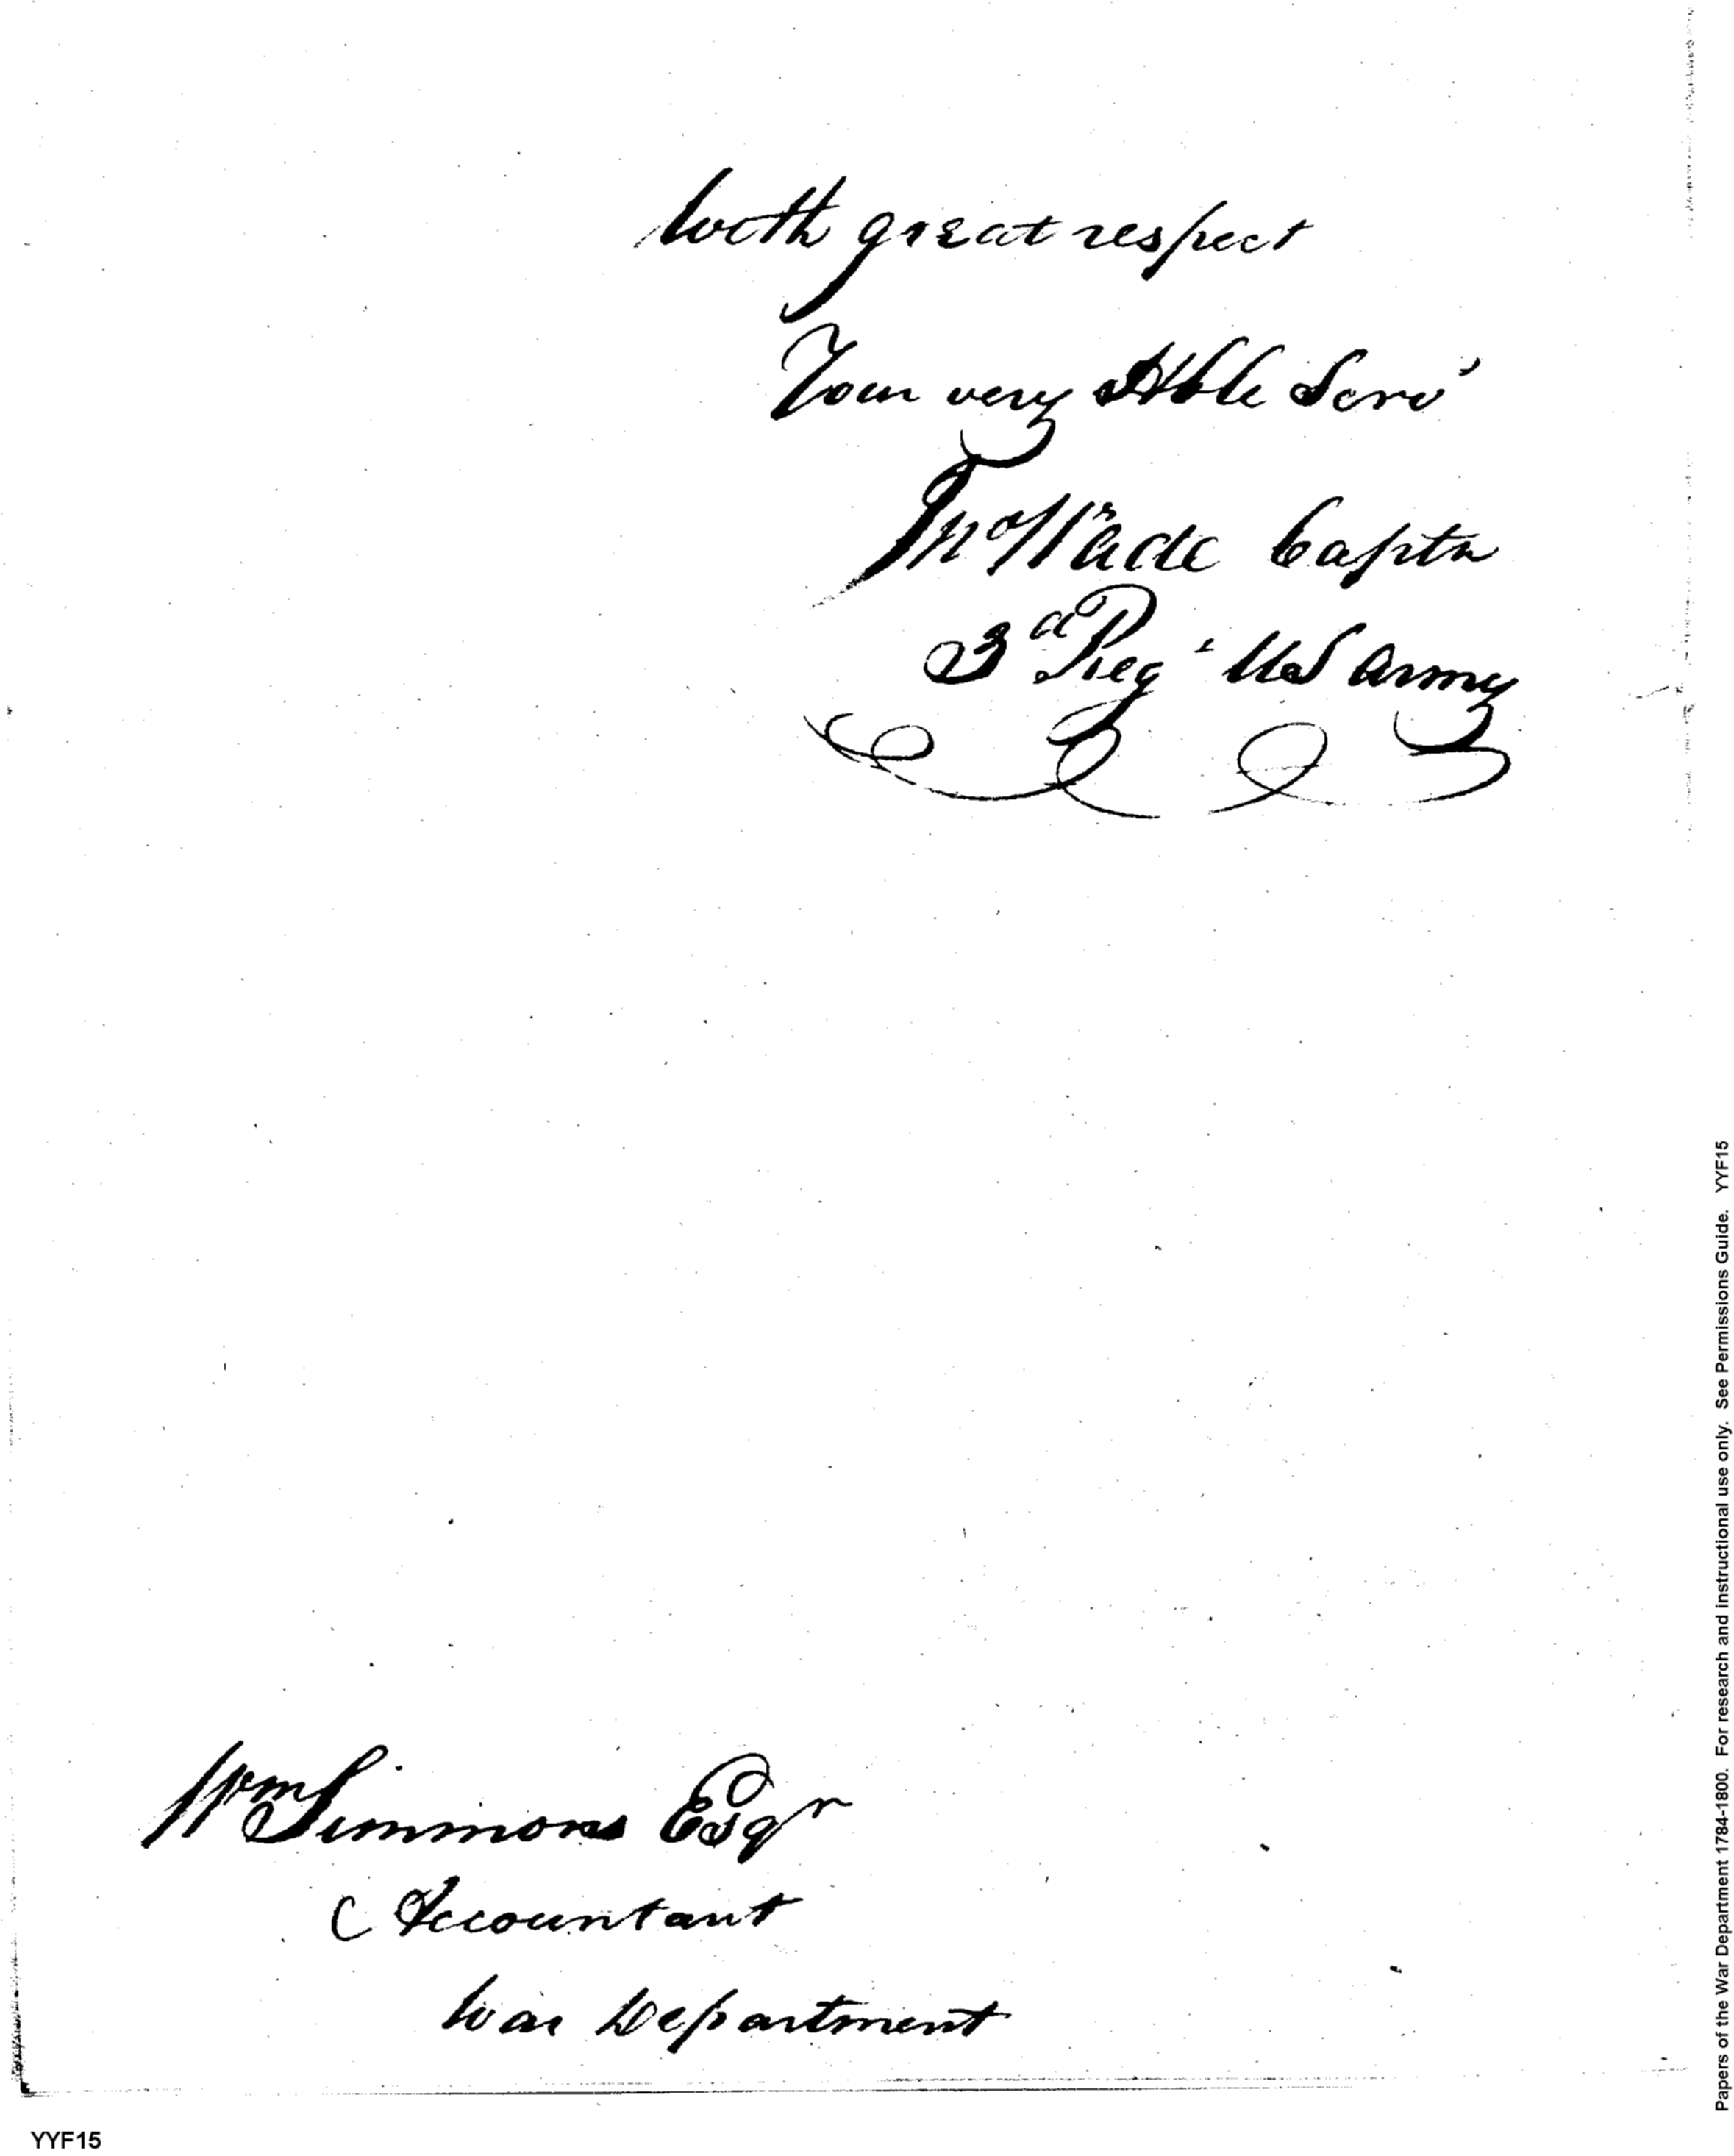 with great respect
Your very Hble Serv'
Jn Wade Captn
3d Reg t US Army
Wm Simmons Esqr
Accountant
War Department
YYF15
Papers of the War Department 1784-1800. For research and instructional use only. See Permissions Guide. YYF15